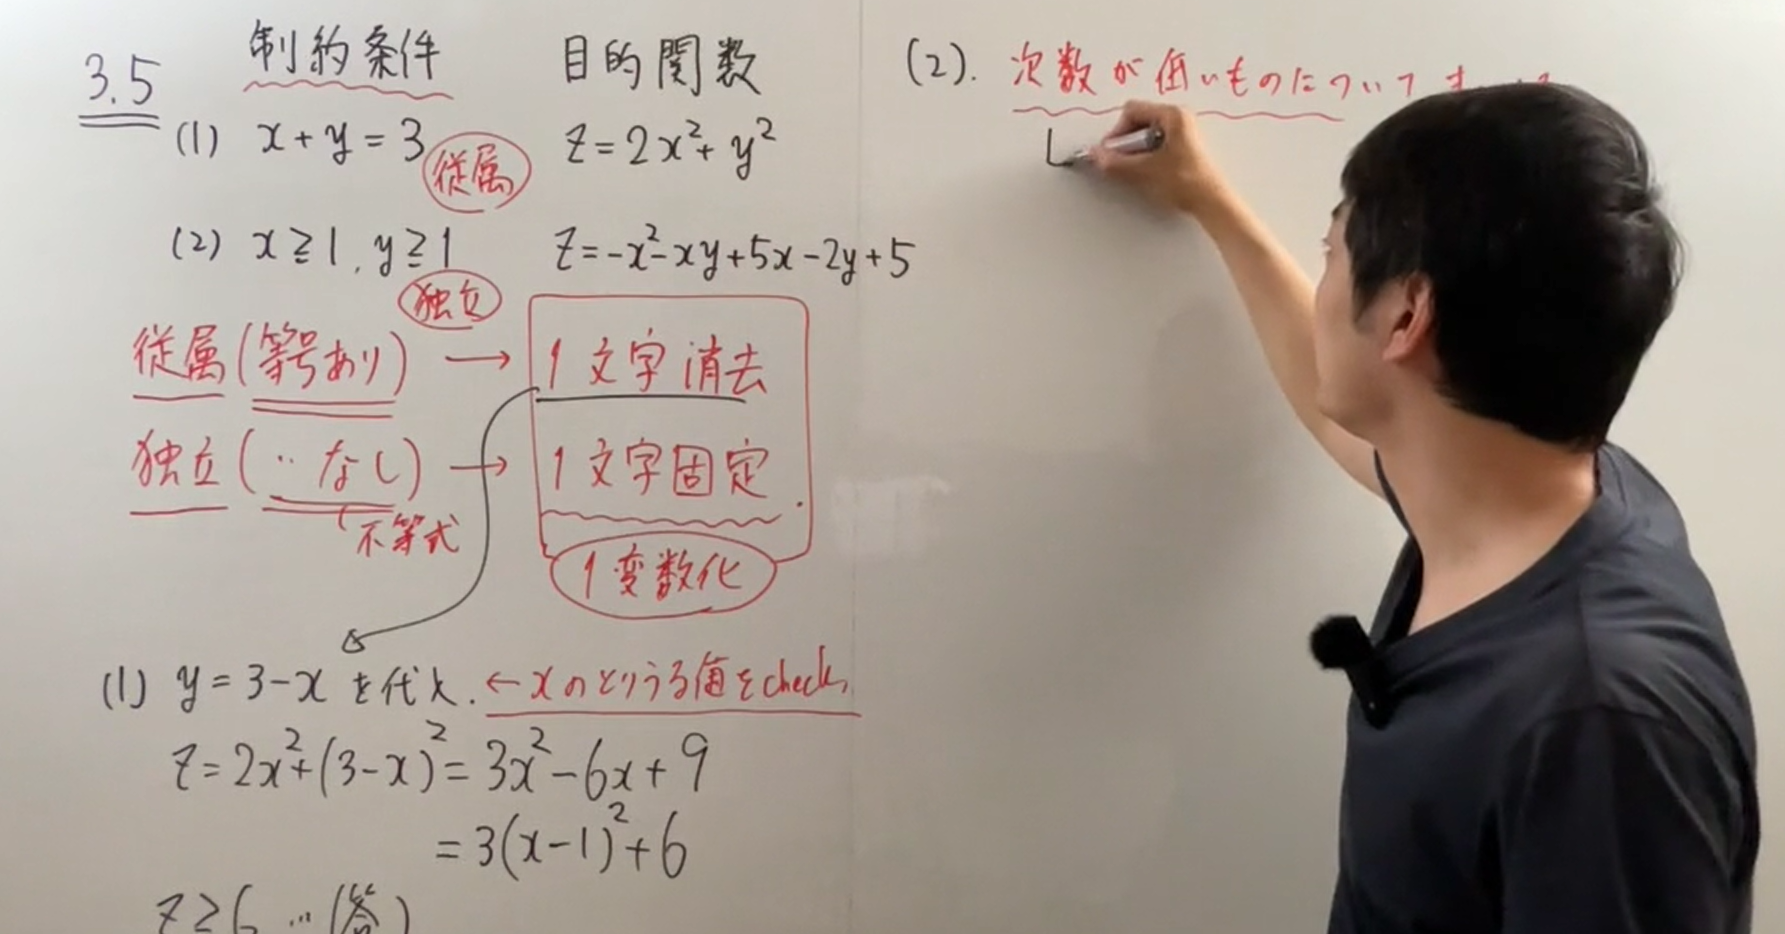 3.5
制約条件 目的関数
(1) x+y=3 従属 z=2x²+y²
(2) x≧1, y≧1 独立 z=-x²-xy+5x-2y+5
従属(等号あり) → 1文字消去
独立(‥なし) → 1文字固定.
不等式
1変数化
(1) y=3-x を代入. ←xのとりうる値をcheck,
z=2x²+(3-x)²=3x²-6x+9
=3(x-1)²+6
z≧6 …(答)
(2). 次数が低いものについてま